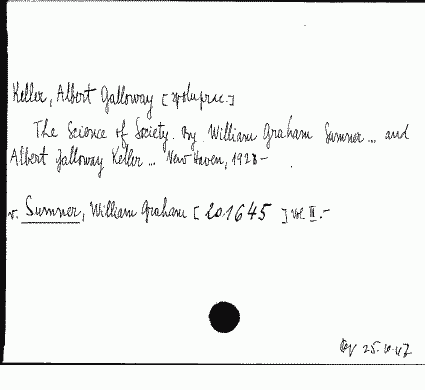 Keller, Albert Galloway [współprac.]
The Science of Society. By William Graham Sumner... and
Albert Galloway Keller... New Haven, 1928-
v. Sumner, William Graham [201645] Vol. II.-
25.